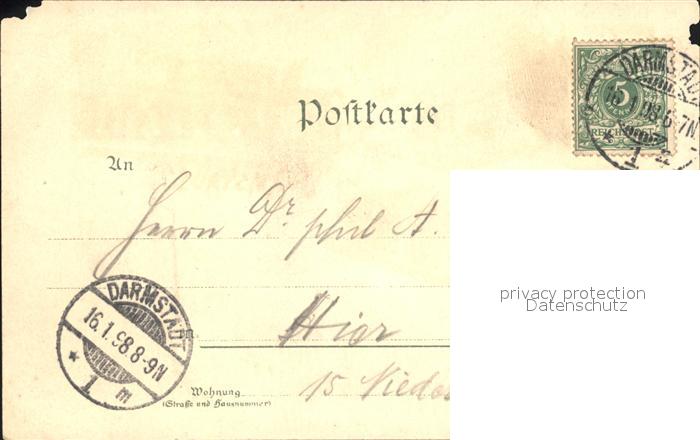 Postkarte
5
REICHSPOST
DARMSTADT
16.1.98.6-7N
* 1 n
An
Herrn Dr phil A.
privacy protection
Datenschutz
DARMSTADT
16.1.98.8-9N
* 1 m
in
Hier
Wohnung
(Straße und Hausnummer)
15 Nieder